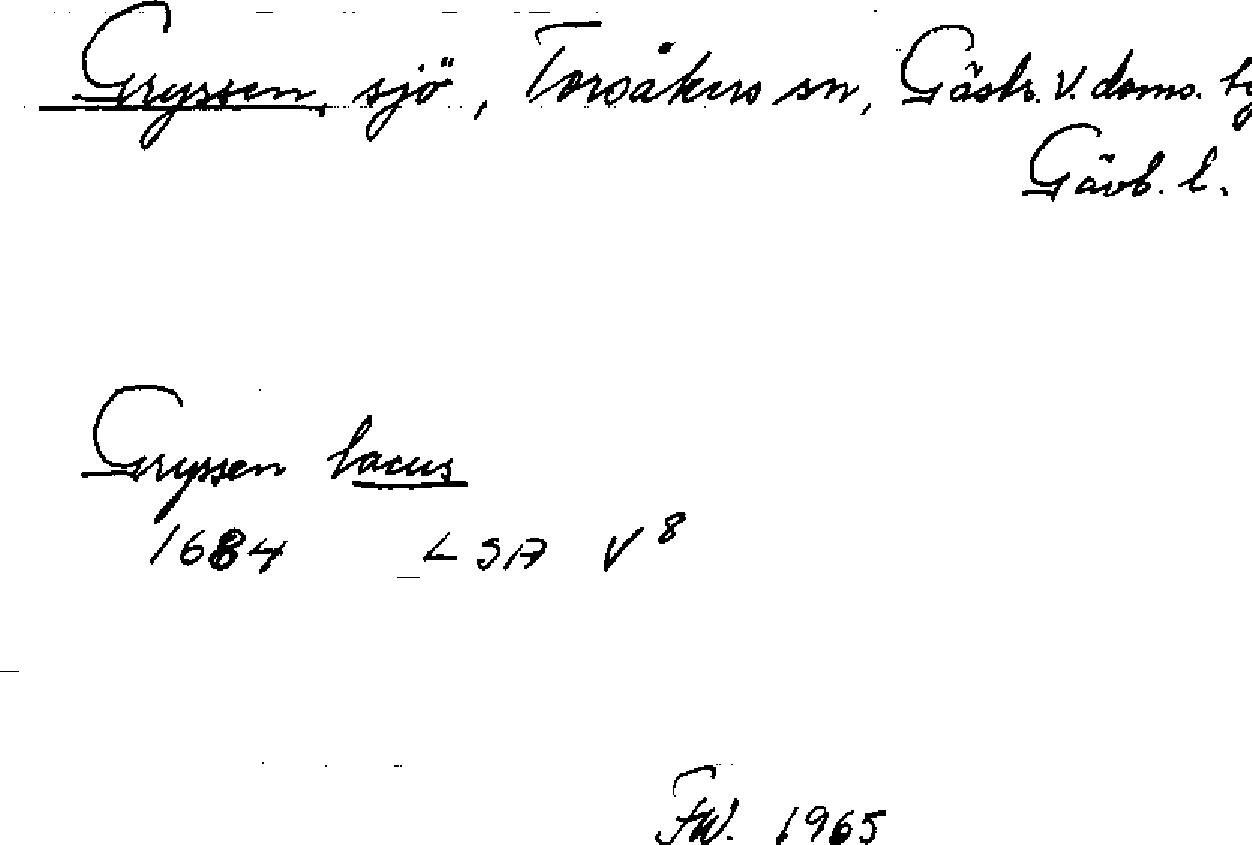 Gryssen, sjö, Torsåkers sn, Gästr. V. doms.
Gävb. l.
Gryssen lacus
1684 LSA V 8
FW. 1965